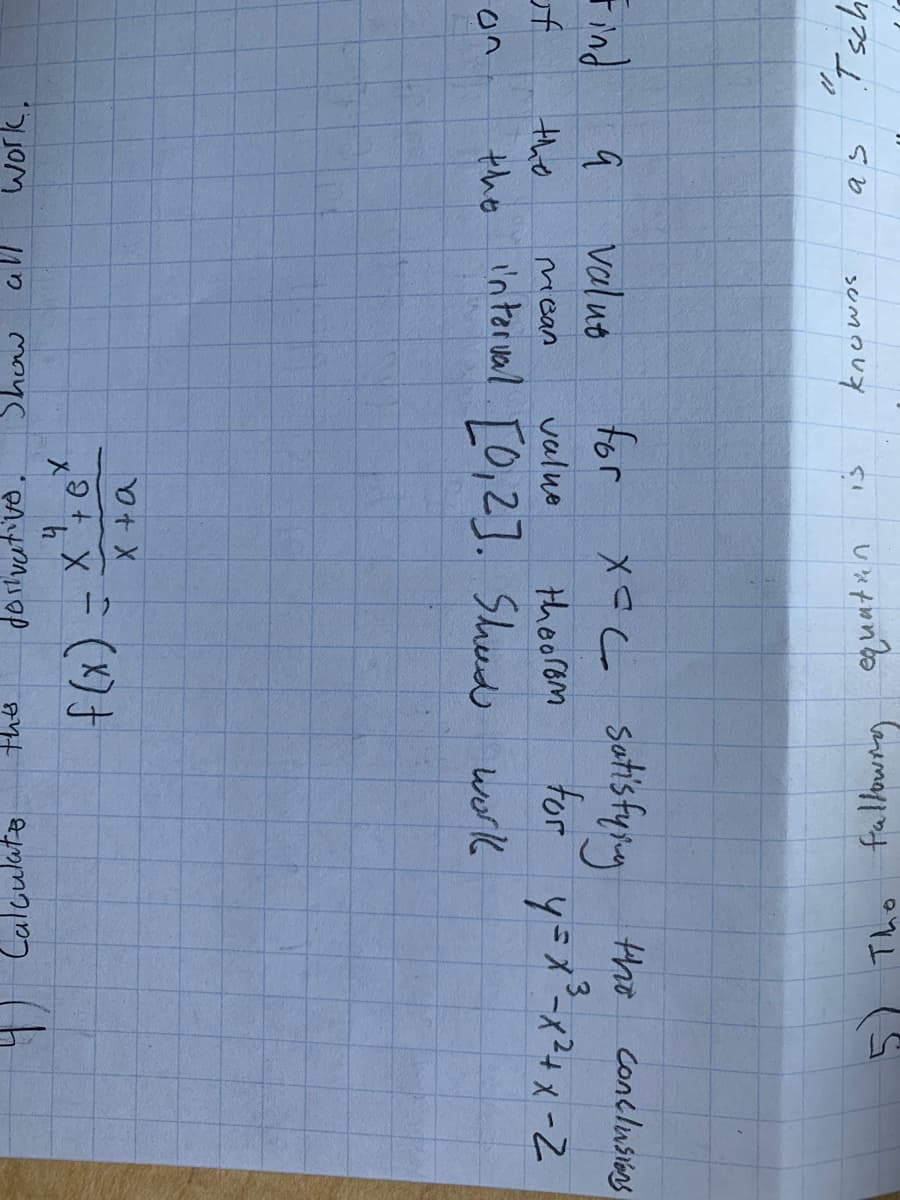 4) Calculate the derivative. Show all work.
f(x) = \frac{x^4 + e^x}{x + a}
Find a value for x=c satisfying the conclusions
of the mean value theorem for y=x³-x²+x-2
on the interval [0,2]. Show work
5) The following equation is known as "Tsch